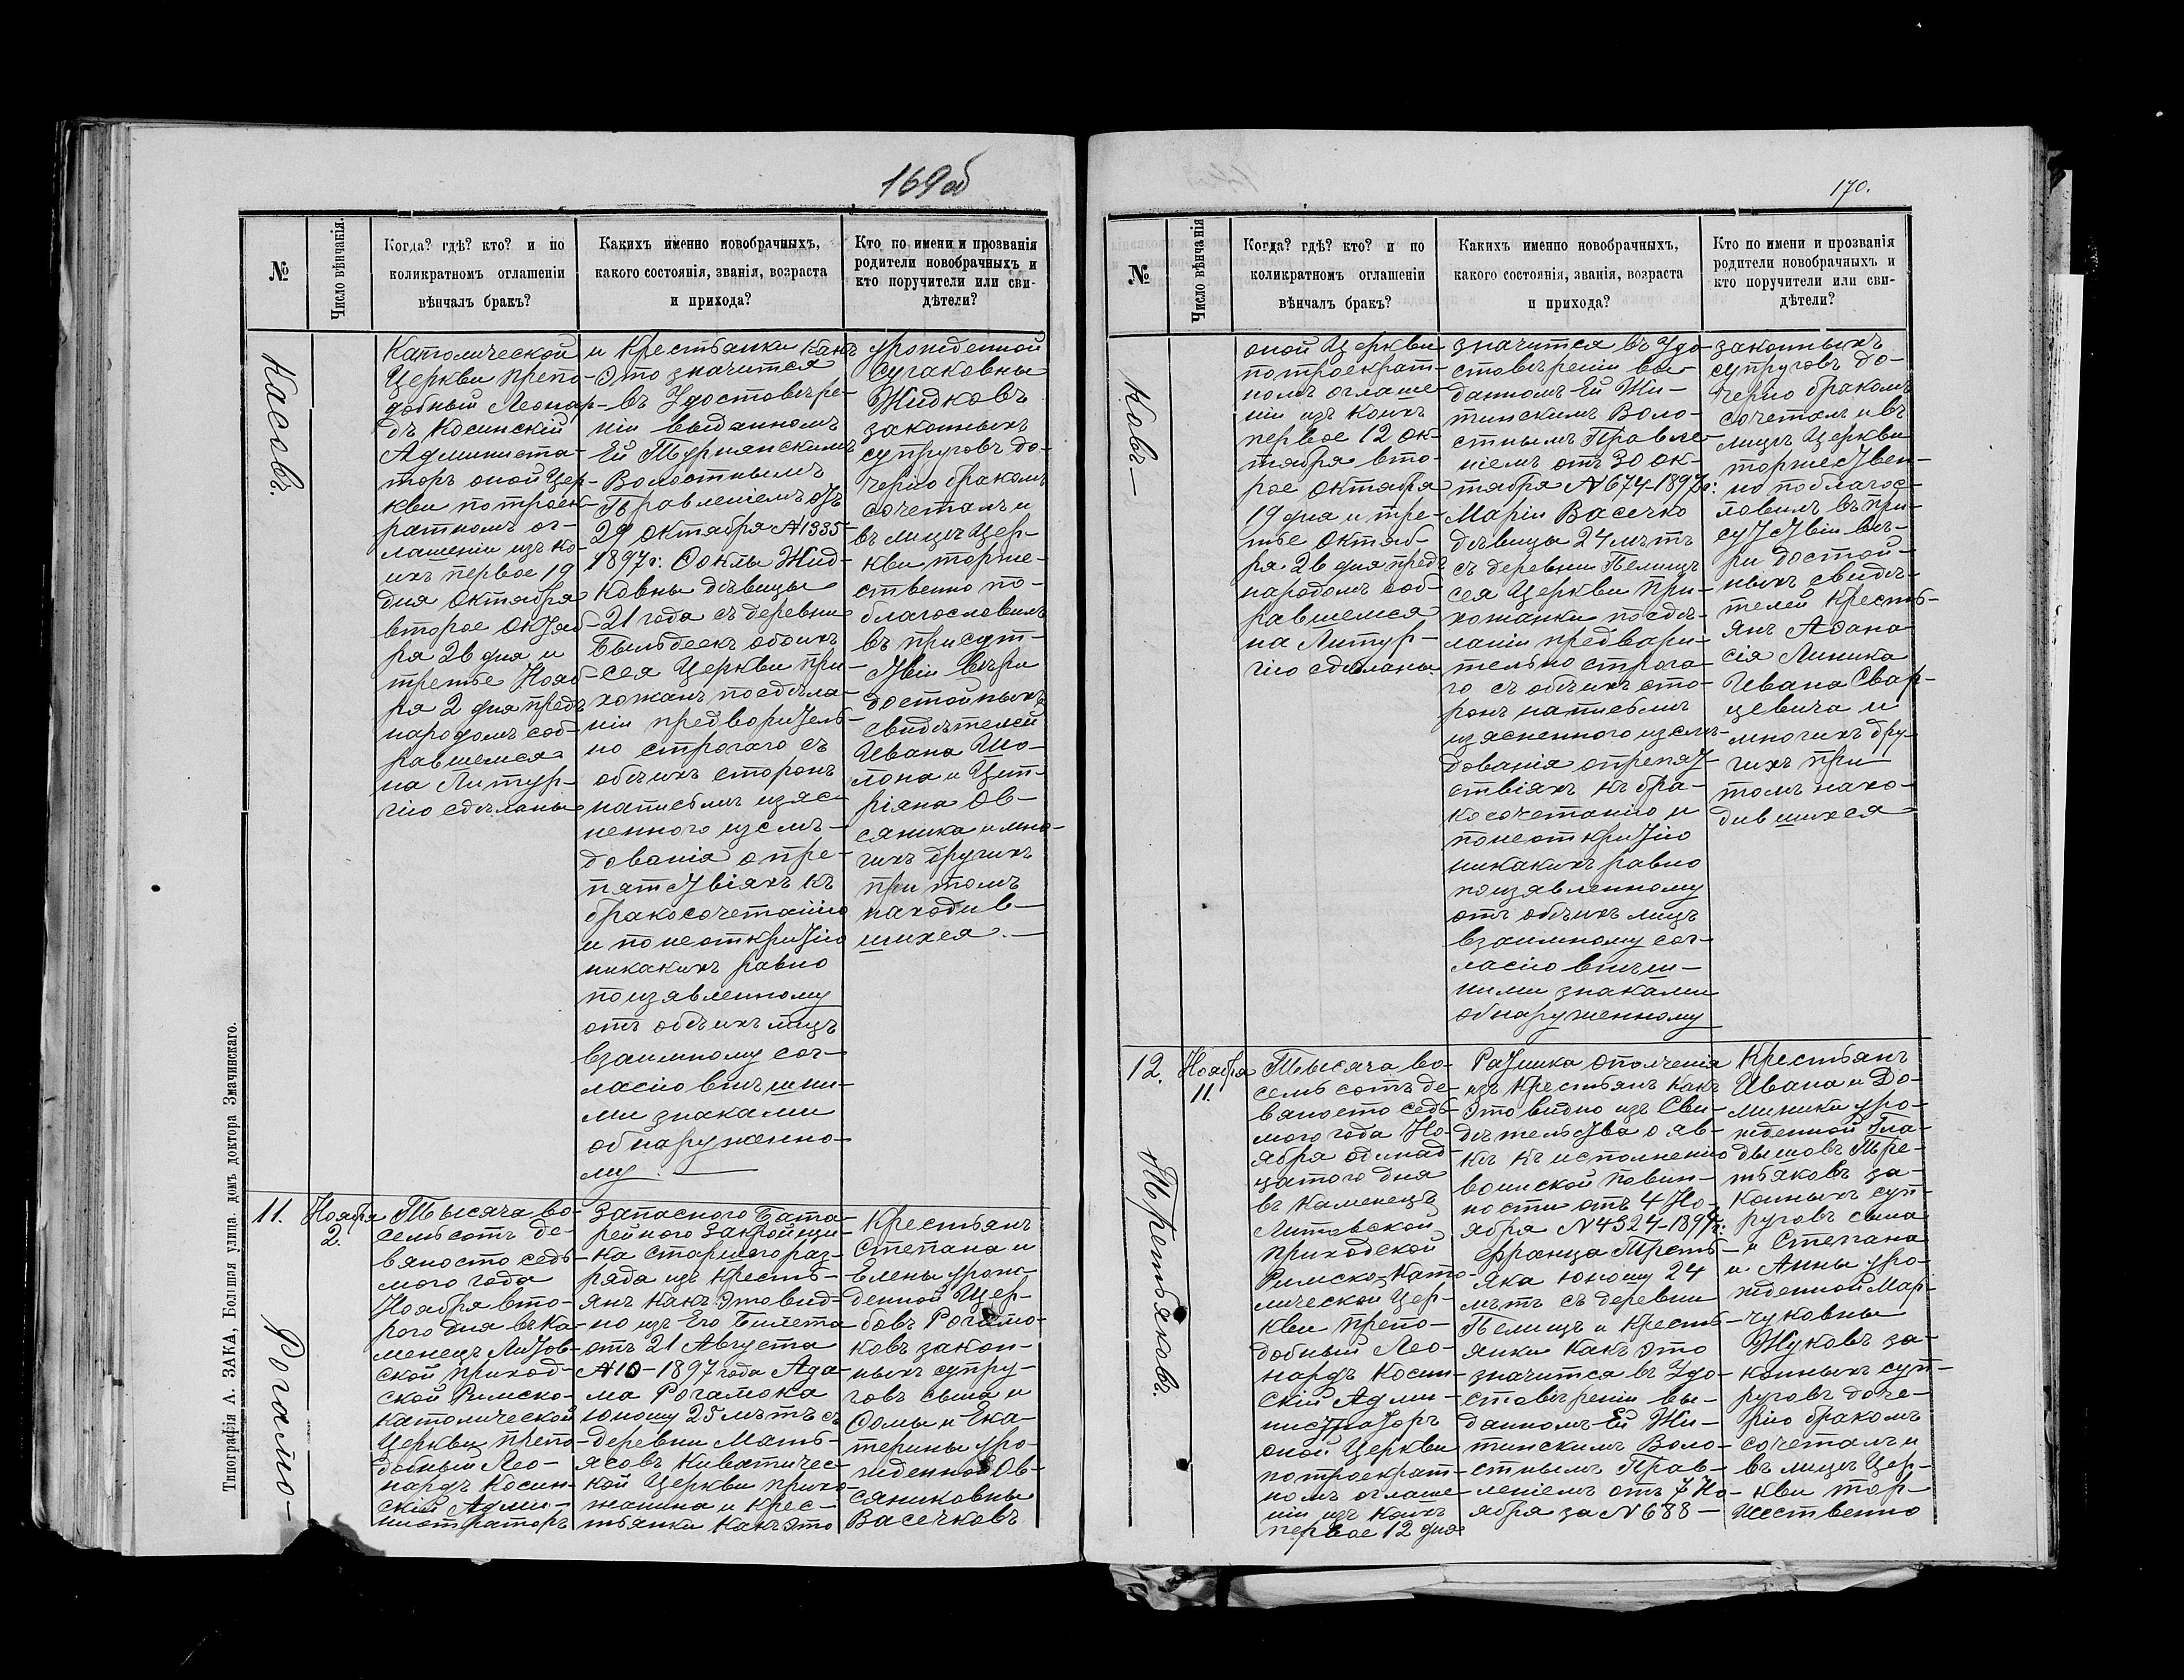 169об
№
Число вѣнчанія.
Когда? гдѣ? кто? и по
коликратномъ оглашеніи
вѣнчалъ бракъ?
Какихъ именно новобрачныхъ,
какого состоянія, званія, возраста
и прихода?
Кто по имени и прозванія
родители новобрачныхъ и
кто поручители или сви-
дѣтели?
Касовъ.
Католической
Церкви препо-
добный Леонар-
дъ Косинскій
Администа-
торъ оной Цер-
кви по троек-
ратномъ ог-
лашеніи изъ ко-
ихъ первое 19
дня Октября
второе Октяб-
ря 26 дня и
третье Нояб-
ря 2 дня предъ
народомъ соб-
равшемся
на Литур-
гію сдѣланы
и Крестьанки какъ
это значится
въ Удостовѣре-
ніи выданномъ
Ей Турнянскимъ
Волостнымъ
Правленіемъ отъ
29 Октября №1335
1897г: Ѳоклы Жид-
ковны дѣвицы
21 года съ деревни
обоихъ
сея Церкви при-
хожанъ по сдѣла-
ніи предворитель-
но строгаго съ
обѣихъ сторонъ
написьмѣ изяс-
неннаго изслѣ-
дованія о пре-
пятствіяхъ къ
бракосочетанію
и по неоткритію
никакихъ равно
по изявленному
отъ обѣихъ лицъ
взаимному сог-
ласію внѣшни-
ми знаками
обнаруженно-
му.
урожденной
Сугаковны
Жидковъ
законныхъ
супруговъ до-
черію бракомъ
сочеталъ и
въ лицѣ Цер-
кви торже-
ственно по-
благословилъ
въ присут-
ствіи вѣри
достойныхъ
свидѣтелей
Ивана Шо-
лома и Цип-
ріана Ов-
сяника и мно-
гихъ другихъ
при томъ
находив-
шихся.
11.
Рогамо-
Ноября
2.
Тысяча во-
семьсотъ де-
вяносто седь-
мого года
Ноября вто-
рого дня въ Ка-
менецъ Литов-
ской приход-
ской Римско-
католической
Церкви препо-
добный Лео-
нардъ Косин-
скій Адми-
нистраторъ
Запасного Бата-
рейного Закройщи-
ка старшого раз-
ряда изъ Кресть-
янъ какъ это вид-
но изъ Его Билета
отъ 21 Августа
№10-1897 года Ада-
ма Рогамока
юношу 25 лѣтъ съ
деревни Мать-
ясовъ Киватичес-
кой Церкви прихо-
жанина и Крес-
тьянки какъ это
Крестьянъ
Степана и
Елены урож-
денной Щер-
бовъ Рогамо-
ковъ закон-
ныхъ супру-
говъ сына и
Ѳомы и Ека-
терины уро-
жденной Ов-
сяниковны
Васечковъ
Типографія А. ЗАКА, Большая улица. домъ доктора Змачинскаго.
170.
№
Число вѣнчанія
Когда? гдѣ? кто? и по
коликратномъ оглашеніи
вѣнчалъ бракъ?
Какихъ именно новобрачныхъ,
какого состоянія, званія, возраста
и прихода?
Кто по имени и прозванія
родители новобрачныхъ и
кто поручители или сви-
дѣтели?
Ковъ-
оной Церкви
по троекрат-
номъ оглаше-
ніи изъ коихъ
первое 12 Ок-
тября вто-
рое Октября
19 дня и тре-
тье Октяб-
ря 26 дня предъ
народомъ соб-
равшемся
на Литур-
гію сдѣланы.
значится въ Удо-
стовѣреніи вы-
данномъ Ей Жи-
тинскимъ Воло-
стнымъ Правле-
ніемъ отъ 30 Ок-
тября №674-1897г:
Маріи Васечко
дѣвицы 24 лѣтъ
съ деревни Пелищъ
сея Церкви при-
хожанки по сдѣ-
ланіи предвари-
тельно строга-
го съ обѣихъ сто-
ронъ написьмѣ
изясненного изслѣ-
дованія о препят-
ствіяхъ къ бра-
косочетанію и
по неоткритію
никакихъ равно
по изявленному
отъ обѣихъ лицъ
взаимному сог-
ласію внѣшн-
ими знаками
обнаруженному
законныхъ
супруговъ до-
черію бракомъ
сочеталъ и въ
лицѣ Церкви
торжествен-
но поблагос-
ловилъ въ при-
сутствіи вѣ-
ри достой-
ныхъ свидѣ-
телей Кресть-
янъ Аѳана-
сія Линика
Ивана Свар-
цевича и
многихъ дру-
гихъ при
томъ нахо-
дившихся
12.
Третьяковъ.
Ноября
11.
Тысяча во-
семьсотъ де-
вяносто седь-
мого года Но-
ября одинад-
цатого дня
въ Каменецъ
Литовской
приходской
Римско-Като-
лической Цер-
кви препо-
добный Лео-
нардъ Косин-
скій Адми-
нистраторъ
оной Церкви
по троекрат-
номъ оглаше-
ніи изъ коихъ
первое 12 дня
Ратника ополченія
изъ Крестьянъ какъ
это видно изъ Сви-
дѣтельства о яв-
кѣ къ исполненію
воинской повин-
ности отъ 4 Но-
ября №4324-1894г:
Франца Треть-
яка юношу 24
лѣтъ съ деревни
Пелищъ и Кресть-
янки какъ это
значится въ Удо-
стовѣреніи вы-
данномъ Ей Жи-
тинскимъ Воло-
стнымъ Прав-
леніемъ отъ 7 Но-
ября за №688-
Крестьянъ
Ивана и До-
миники уро-
жденной Гла-
дышовъ Тре-
тьяковъ за-
конныхъ суп-
руговъ сына
и Степана
и Анны уро-
жденной Мар-
чуковны
Жуковъ за-
конныхъ суп-
руговъ доче-
рію бракомъ
сочеталъ и
въ лицѣ Цер-
кви тор-
жественно